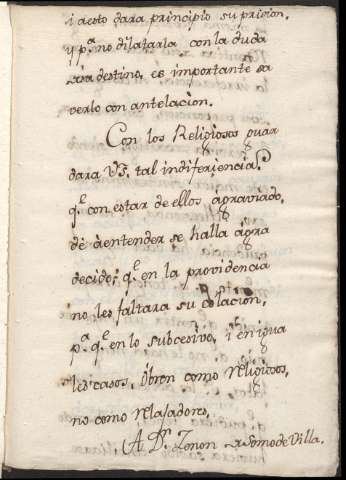 i áesto dara principio su prision,
y p.ª no dilatarla con la duda
su destino, es importante sa
verlo con antelacion.
Con los Religiosos guar
dara VS. tal indiferiencia
q.e con estar de ellos agraviado,
dé àentender se halla agra
decido; q.e en la providencia
no les faltara su
p.ª q.e en lo subcesivo, i en igua
les casos, obren como religiosos,
no como relajadores,
A D.n Zenon de Somo de Villa.